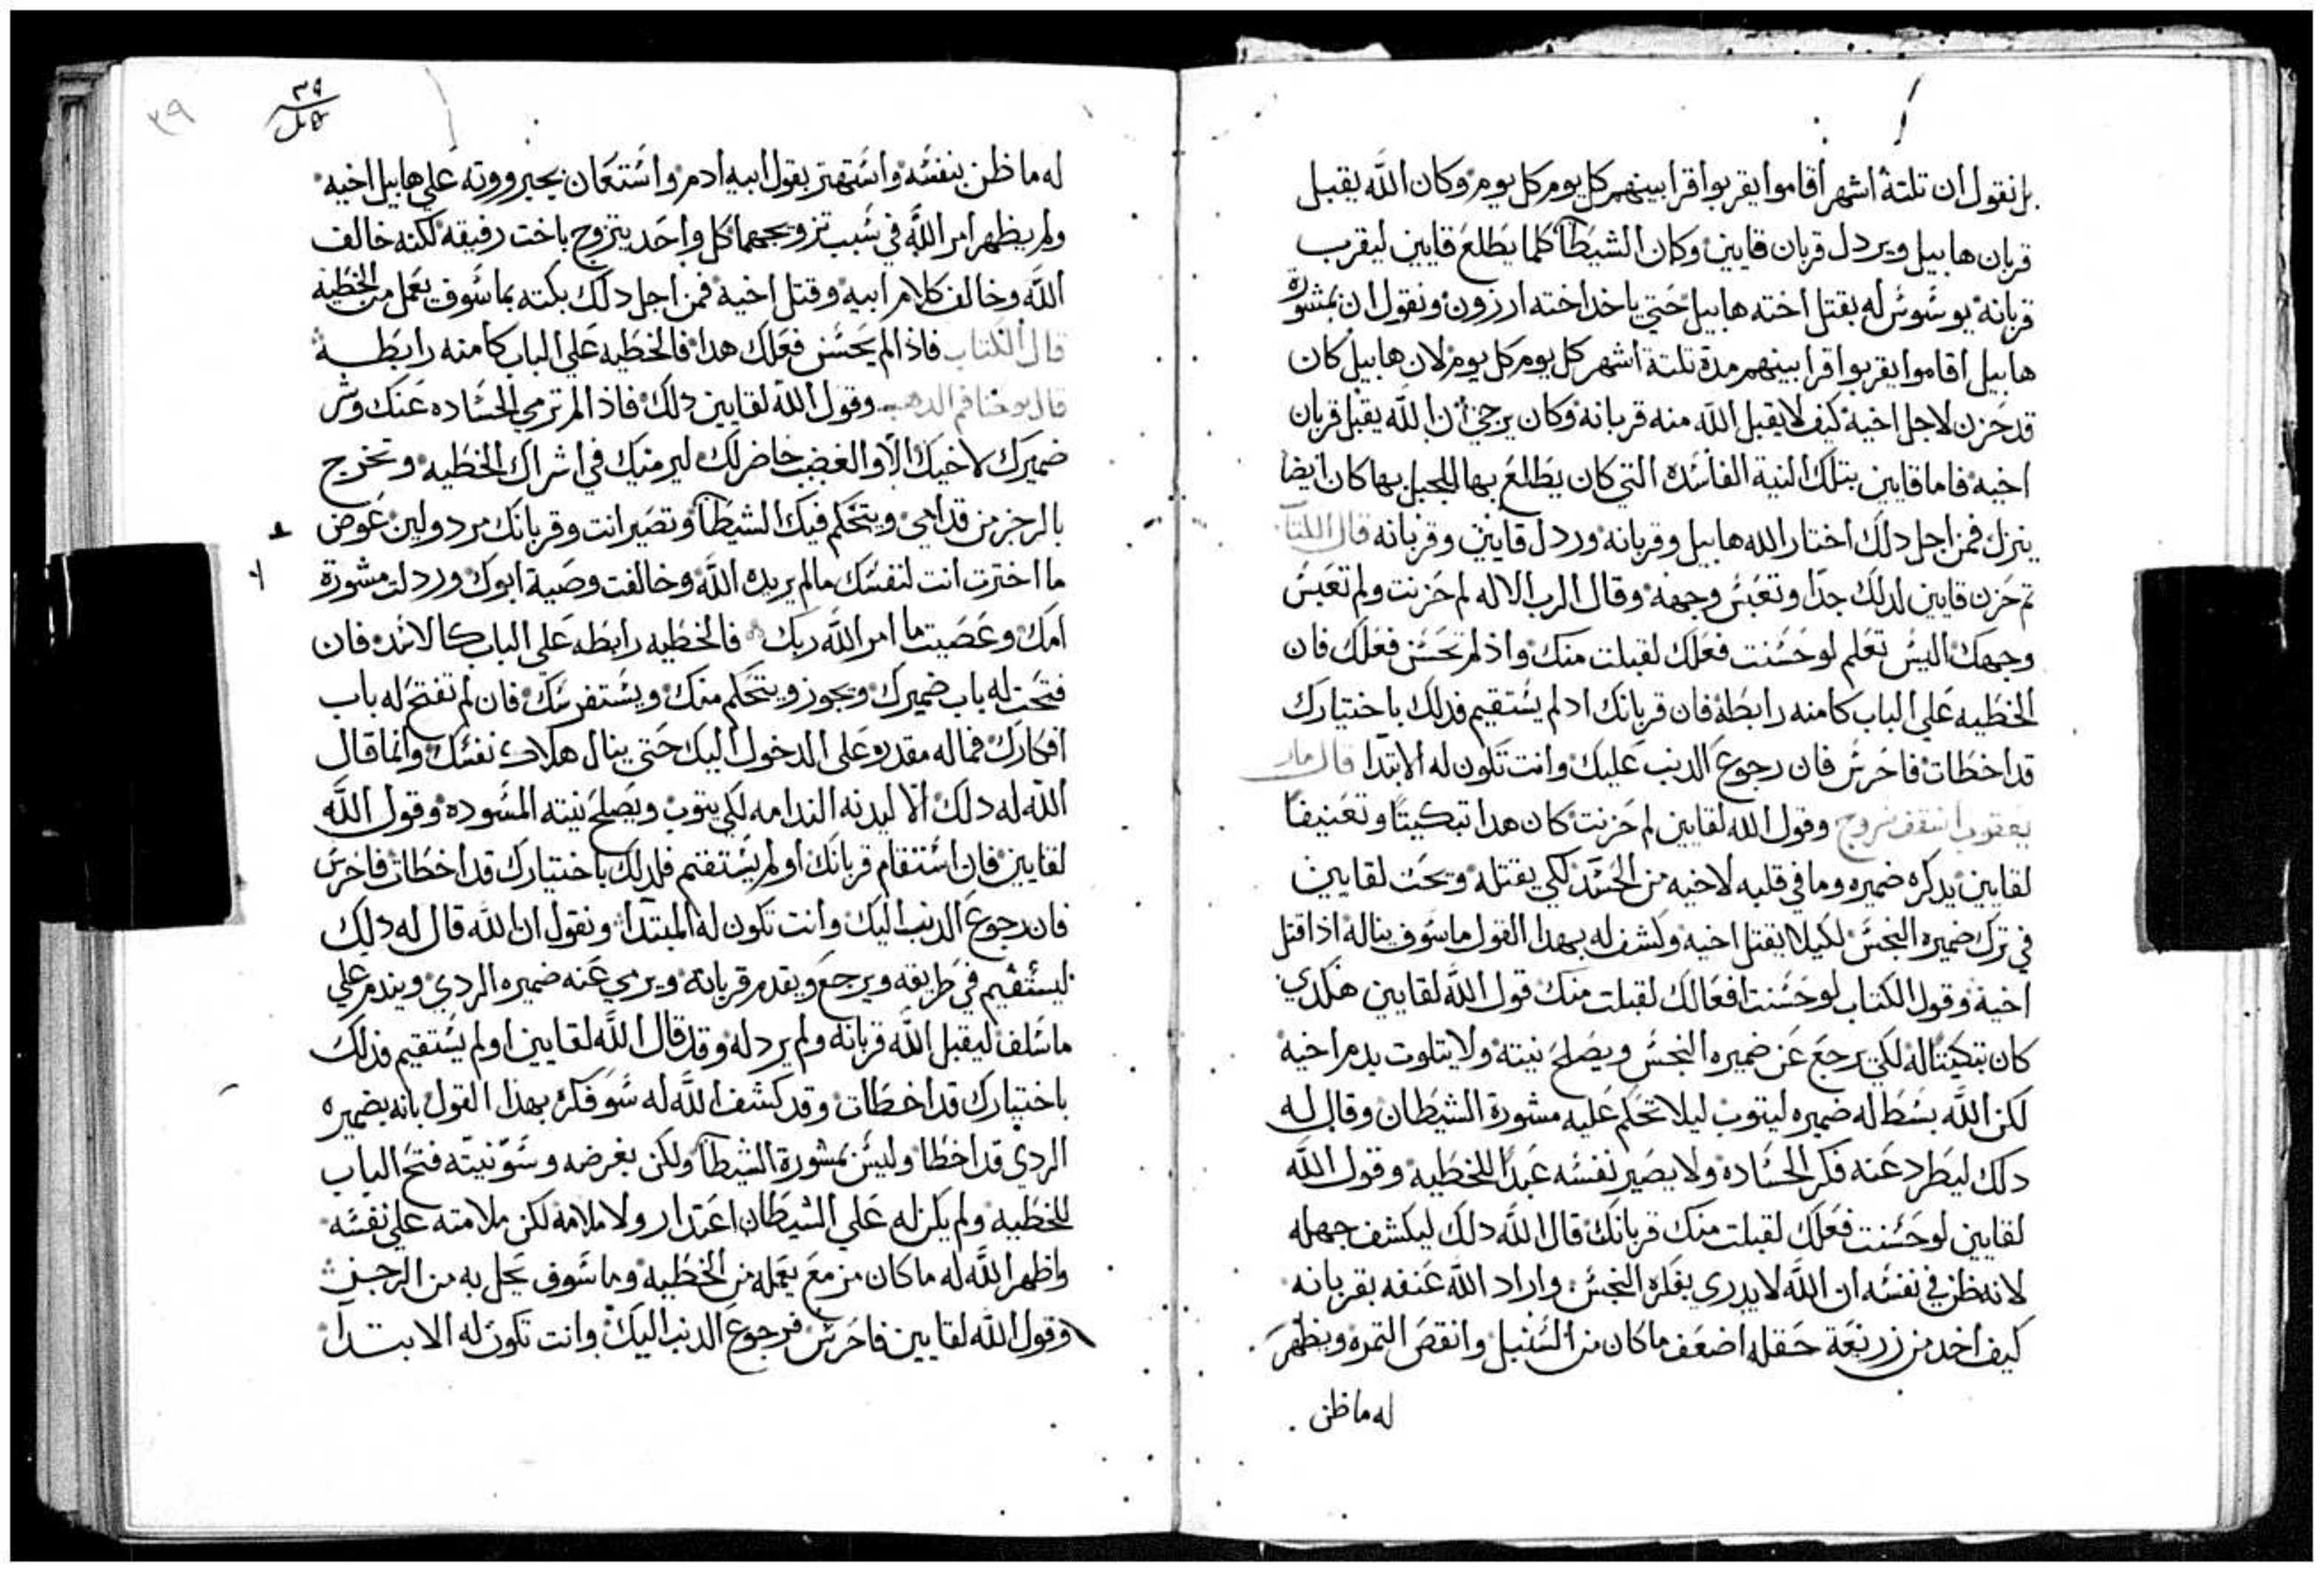 بل نقول ان تلتة اشهر اقاموا يقربوا قرابينهم كل يوم كل يوم وكان الله يقبل
قربان هابيل ويردل قربان قايين وكان الشيطان كلما يطلع قايين ليقرب
قربانه يوسوس له بقتل اخته هابيل حتي ياخد اخته ارزون ونقول ان بمشورة
هابيل اقاموا يقربوا قرابينهم مدة تلتة اشهر كل يوم كل يوم لان هابيل كان
قد حزن لاجل اخيه كيف لا يقبل الله منه قربانه وكان يرجي ان الله يقبل قربان
اخيه فاما قايين بتلك النية الفاسده التي كان يطلع بها للجبل بها كان ايضا
ينزل فمن اجل دلك اختار الله هابيل وقربانه وردل قايين وقربانه قال الكتاب
تم حزن قايين لدلك جدا وتعبس وجهه وقال الرب الاله لم حزنت ولم تعبس
وجهك اليس تعلم لو حسنت فعلك لقبلت منك واذ لم تحسن فعلك فان
الخطيه علي الباب كامنه رابطة فان قربانك اد لم يستقيم فدلك باختيارك
قد اخطات فاحرس فان رجوع الدنب عليك وانت تكون له الابتدا قال مار
يعقوب اسقف سروج وقول الله لقايين لم حزنت كان هدا تبكيتا وتعنيفا
لقايين يدكره ضميره وما في قلبه لاخيه من الحسد لكي يقتله ويحت لقايين
في ترك ضميره النجس لكيلا يقتل اخيه وكشف له بهدا القول ما سوف يناله اذا قتل
اخيه وقول الكتاب لو حسنت افعالك لقبلت منك قول الله لقايين هكدي
كان تبكيتا له لكي يرجع عن ضميره النجس ويصلح نيته ولا يتلوت بدم اخيه
لكن الله بسط له ضميره ليتوب ليلا تحكم عليه مشورة الشيطان وقال له
دلك ليطرد عنه فكر الحساده ولا يصير نفسه عبدا للخطيه وقول الله
لقايين لو حسنت فعلك لقبلت منك قربانك قال الله دلك ليكشف جهله
لانه ظن في نفسه ان الله لا يدري بفكره النجس واراد الله عنفه بقربانه
كيف اخد من زريعة حقله اضعف ما كان من السنبل وانقص التمره ويظهر
له ما ظن
٣٩
٣٩
له ما ظن بنفسه واستهتر بقول ابيه ادم واستعان بجبرووته علي هابيل اخيه
ولم يظهر امر الله في سبب تزويجهما كل واحد يتزوج باخت رفيقه لكنه خالف
الله وخالف كلام ابيه وقتل اخيه فمن اجل دلك بكته بما سوف يعمل من الخطيه
قال الكتاب فاذ الم يحسن فعلك هدا فالخطيه علي الباب كامنه رابطة
قال يوحنا فم الدهب وقول الله لقايين دلك فاذ الم ترمي الحساده عنك وشر
ضميرك لاخيك الا والغضب حاضر لك ليرميك في اشراك الخطيه وتخرج
بالرجز من قدامي ويتحكم فيك الشيطان وتصير انت وقربانك مردولين عوض
ما اخترت انت لنفسك مالم يريده الله وخالفت وصية ابوك ورددلت مشورة
امك وعصيت ما امر الله ربك فالخطيه رابطه علي الباب كالاسد فان
فتحت له باب ضميرك ويجوز ويتحكم منك ويستفرسك فان لم تفتح له باب
افكارك فما له مقدره علي الدخول اليك حتي ينال هلاك نفسك وانما قال
الله له دلك الا ليدنه الندامه لكي يتوب ويصلح نيته المسوده وقول الله
لقايين فان استقام قربانك او لم يستقم فلدلك باختيارك قد اخطات فاحرس
فان رجوع الدنب اليك وانت تكون له المبتدا ونقول ان الله قال له دلك
ليستقيم في طريقه ويرجع ويقدم قربانه ويرمي عنه ضميره الردي ويندم علي
ما سلف ليقبل الله قربانه ولم يردله وقد قال الله لقايين او لم يستقيم فدلك
باختيارك قد اخطات وقد كشف الله له سو فكره بهذا القول بانه بضميره
الردي قد اخطا وليس بمشورة الشيطان ولكن بغرضه وسو نيته فتح الباب
للخطيه ولم يكن له علي الشيطان اعتدار ولا ملامه لكن ملامته علي نفسه
واظهر الله له ما كان مزمع يعمله من الخطيه وما سوف يحل به من الرجز
وقول الله لقايين فاحرس فرجوع الدنب اليك وانت تكون له الابتدا